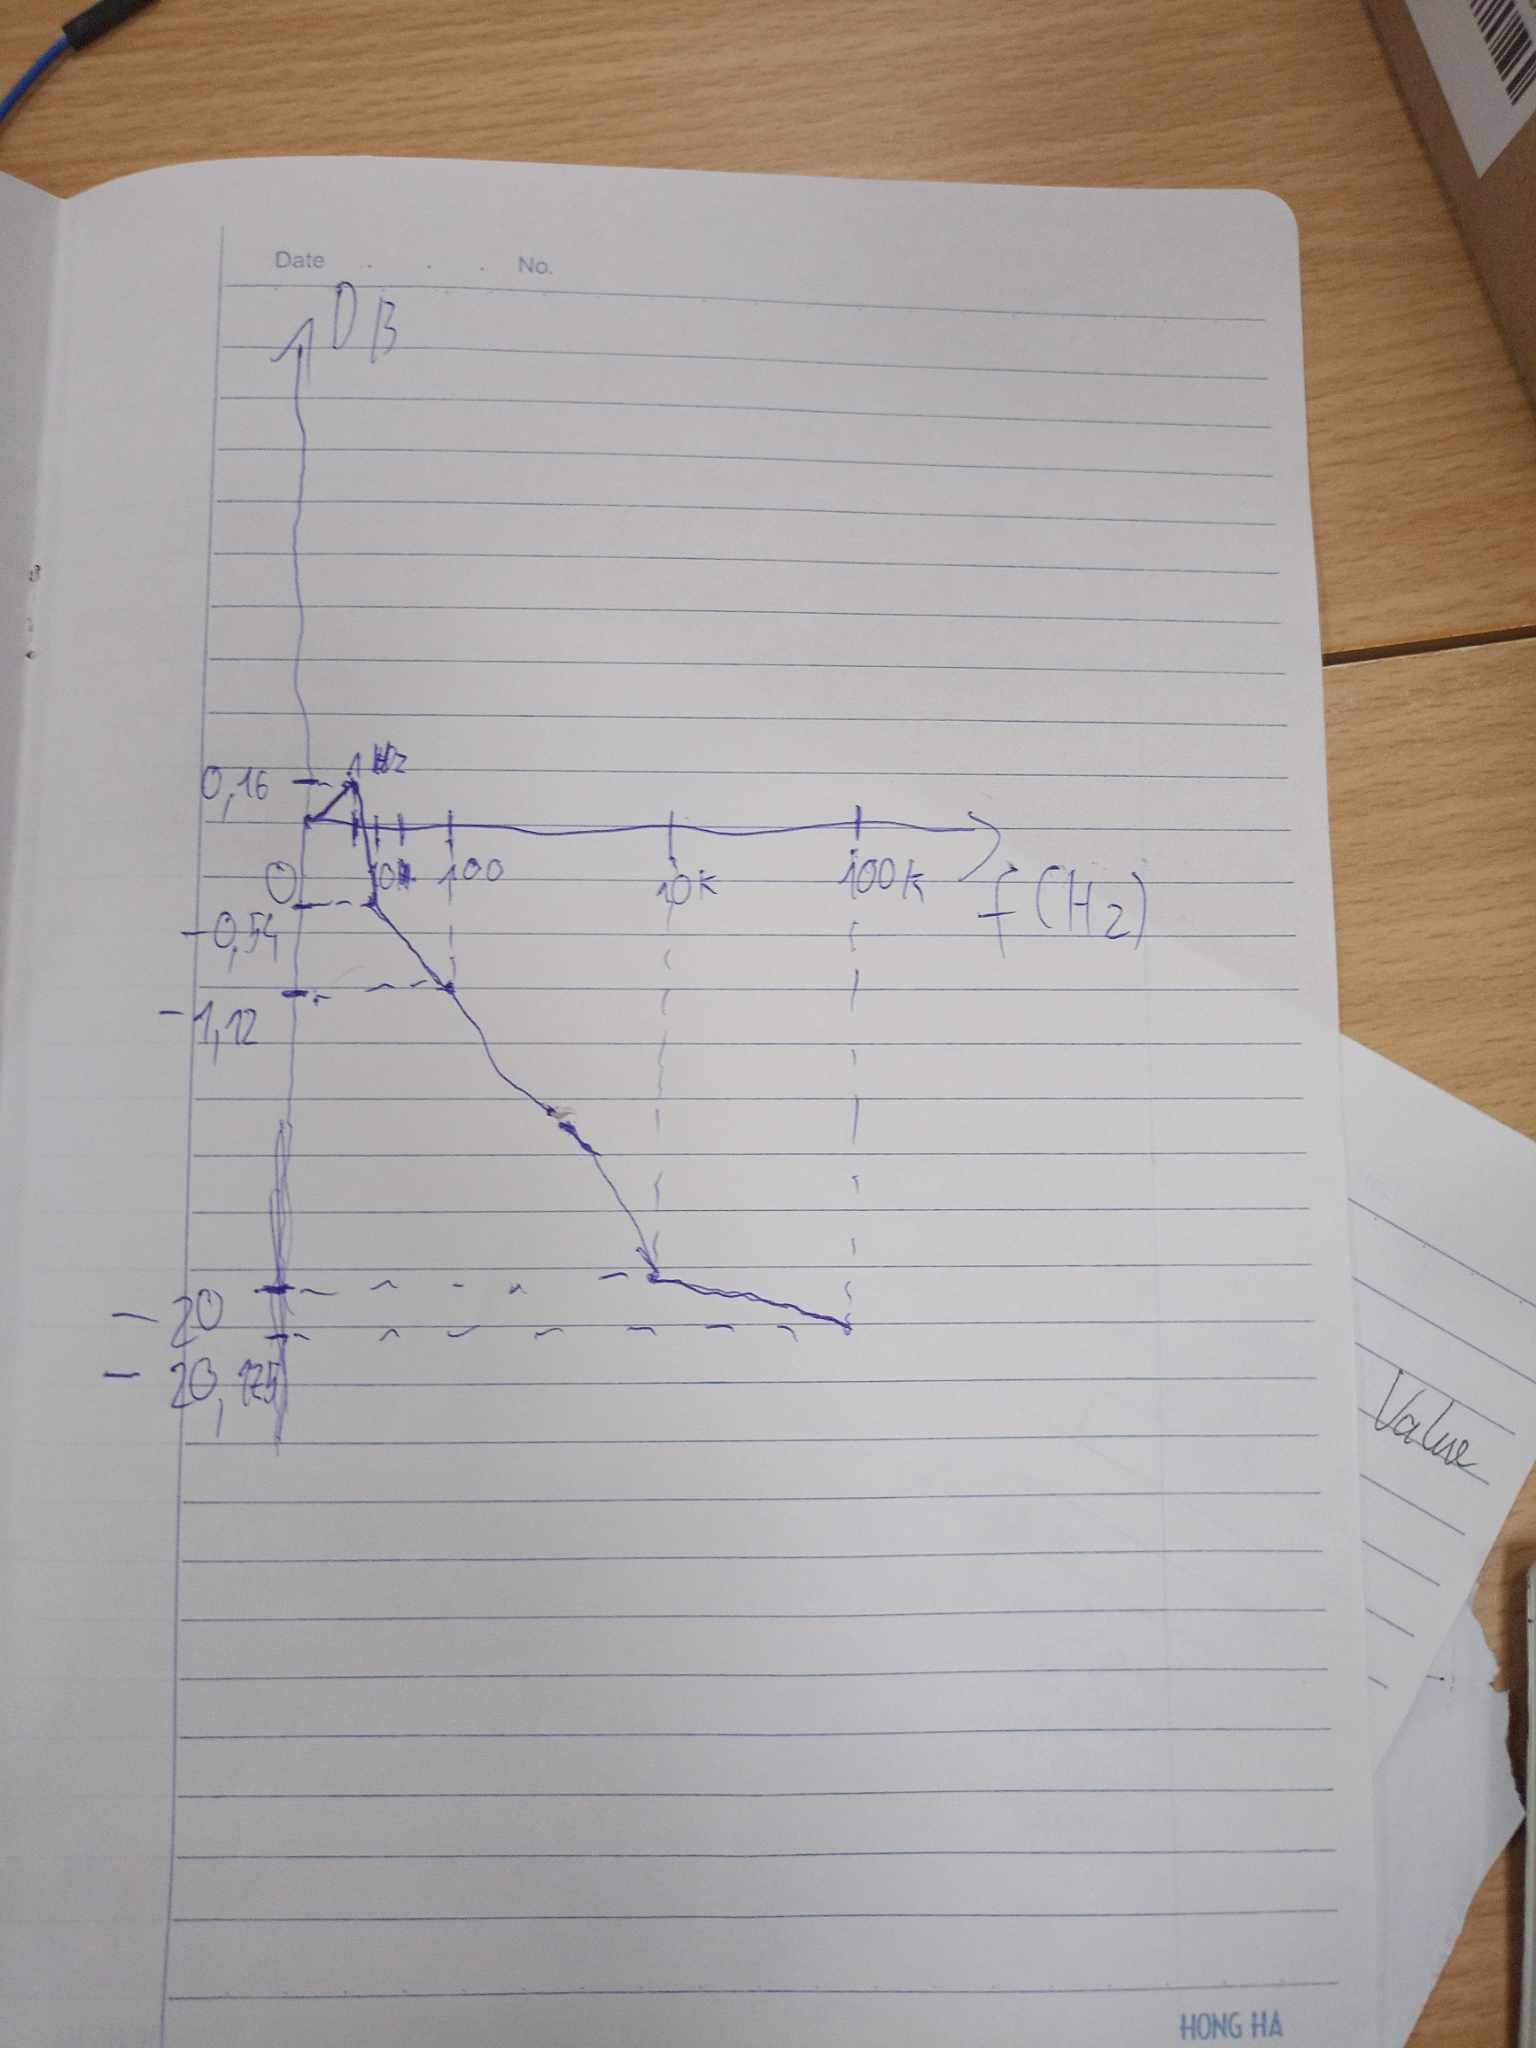 Date . . . No.
DB
0,16 1 Hz
0 10 100 10K 100K f(Hz)
-0,54
-1,12
-20
-20,175
Value
HONG HA